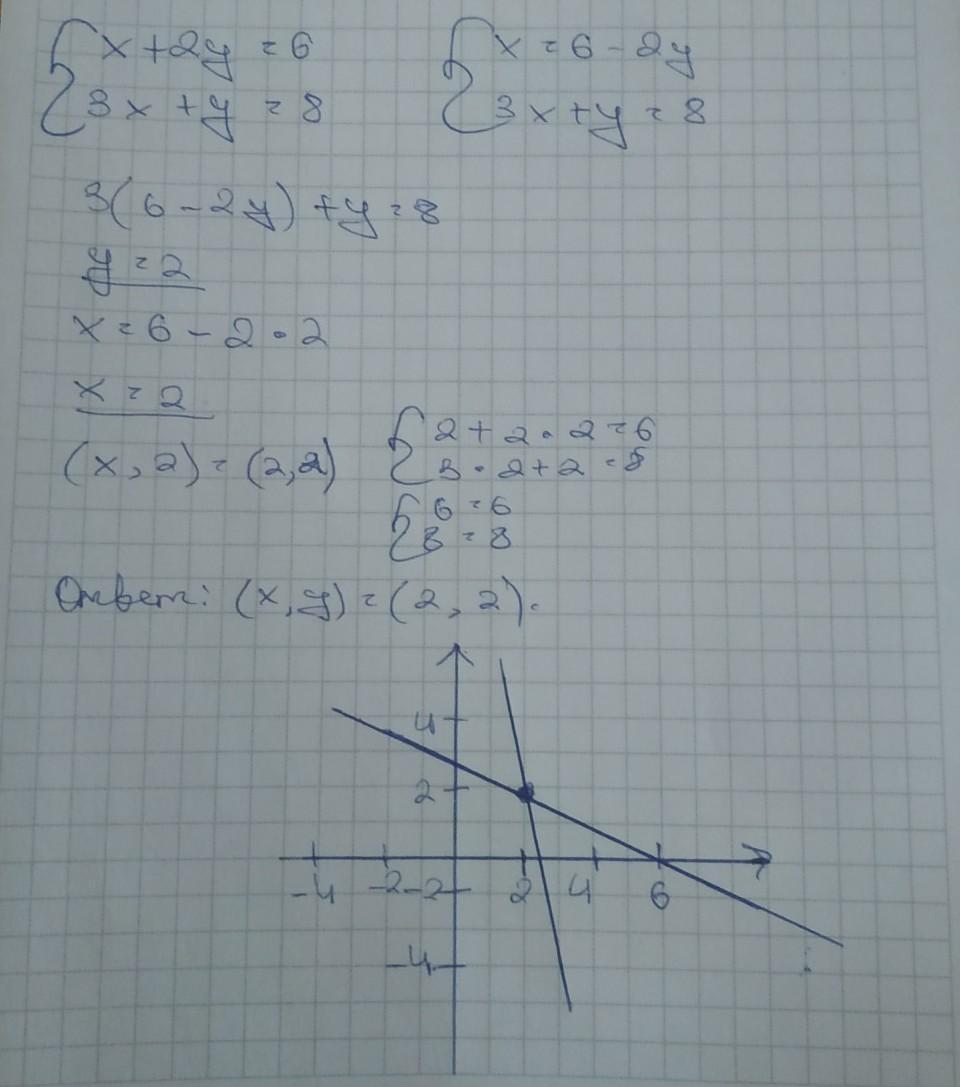 { x + 2y = 6    { x = 6 - 2y
{ 3x + y = 8    { 3x + y = 8
3(6 - 2y) + y = 8
y = 2
x = 6 - 2 · 2
x = 2
{ 2 + 2 · 2 = 6
(x, 2) = (2, 2)    { 3 · 2 + 2 = 8
{ 6 = 6
{ 8 = 8
Ответ: (x, y) = (2, 2).
4
2
-4 -2 -2 2 4 6
-4